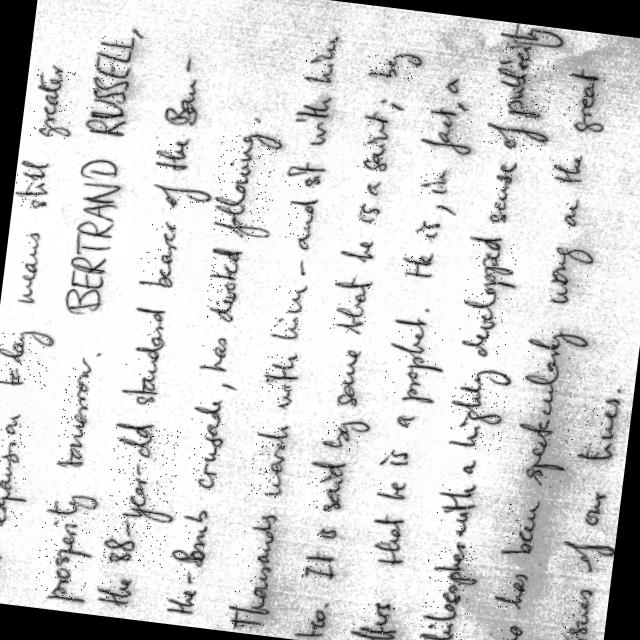 expansion today means still greater
prosperity tomorrow. BERTRAND RUSSELL,
the 88-year-old standard bearer of the Ban-
the-Bomb crusade, has devoted following.
Thousands march with him - and sit with him
too. It is said by some that he is a saint; by
others that he is a prophet. He is, in fact, a
philosopher with a highly developed sense of publicity
has been wrong on the great
issues of our times.